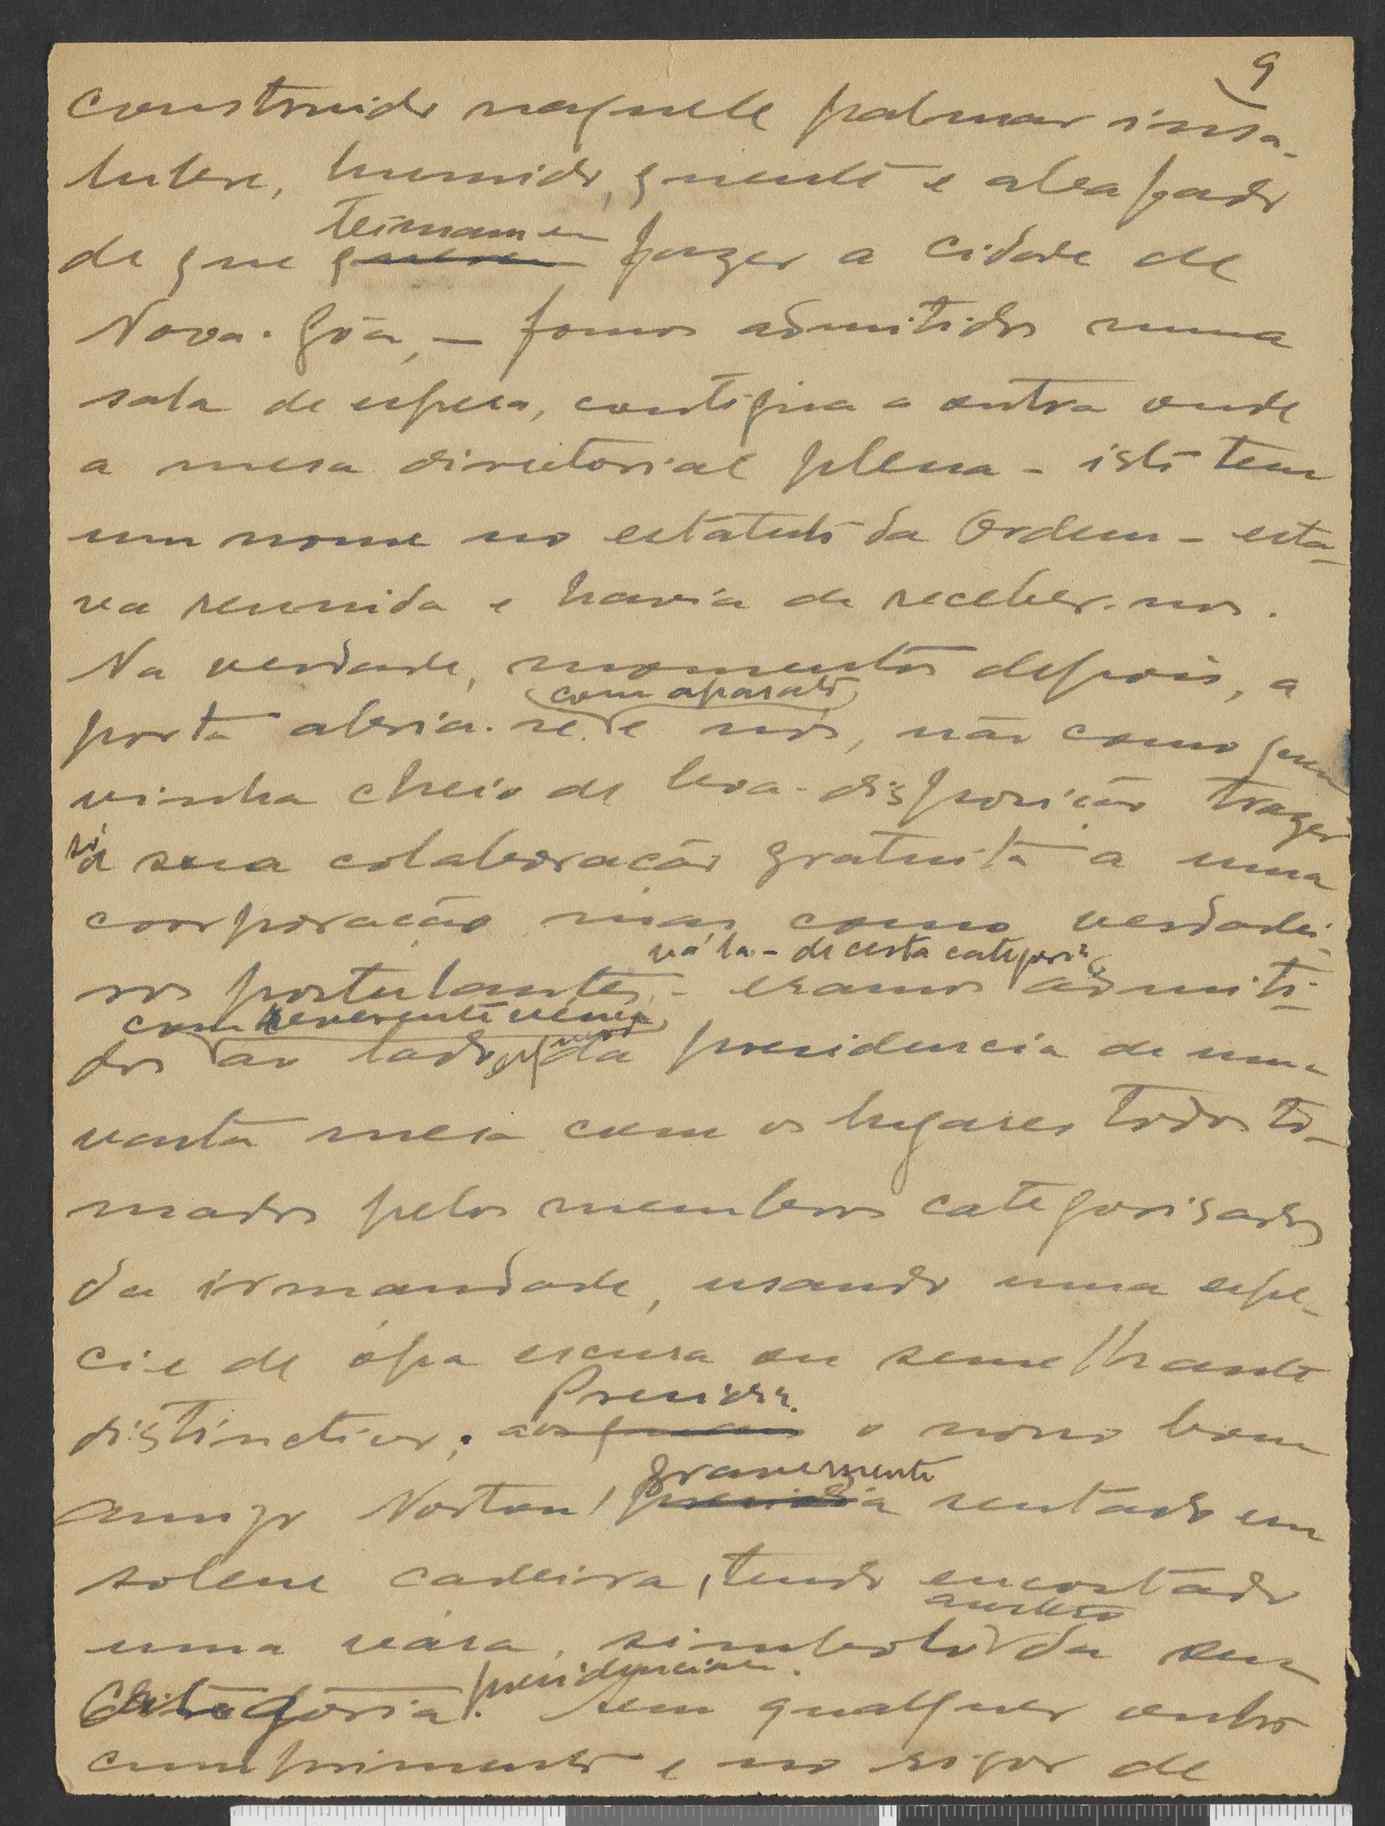 9
construido naquele palmar insa-
lubre, humido, quente e alcapado
de que teimam em querem fazer a cidade de
Nova-Gôa, — fomos admitidos numa
sala de espera, contigua a outra onde
a mesa directorial plena - isto tem
um nome no estatuto da Ordem - esta-
va reunida e havia de receber-nos.
Na verdade, momentos depois, a
com aparato
porta abria-se e nós, não como quem
vinha cheio de boa-disposição trazer
só a sua colaboração gratuita a uma
corporação mas como verdadei-
vá lá - de certa categoria
ros postulantes - eramos admiti-
com reverente vénia
dos ao lado da presidencia de uma
vasta mesa com os lugares todos to-
mados pelos membros categorisados
da irmandade, usando uma espe-
cie de ópa escura ou semelhante
Presidia
distinctivo; aos quais o nosso bom
gravemente
amigo Norton, presidia sentado em
solene cadeira, tendo encostado
austero
uma vára, simbolo da sua
presidencial.
categoria. Sem qualquer outro
cumprimento e no rigor de